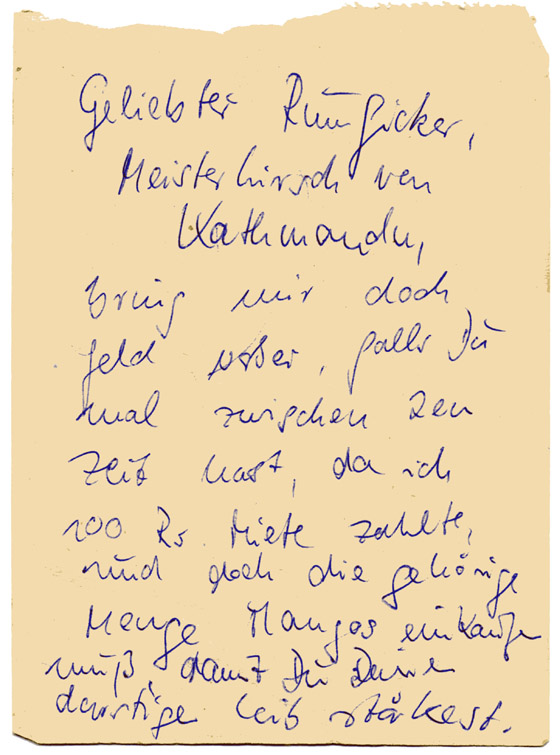 Geliebster
Meisterhirsch von
Kathmandu,
bring mir doch
Geld vorbei, falls Du
mal zwischen Zen
Zeit hast, da ich
100 Rs Miete zahlte,
und doch die gehörige
Menge Mangos einkaufen
muß, damit Du Deinen
durstige Leib stärkest.